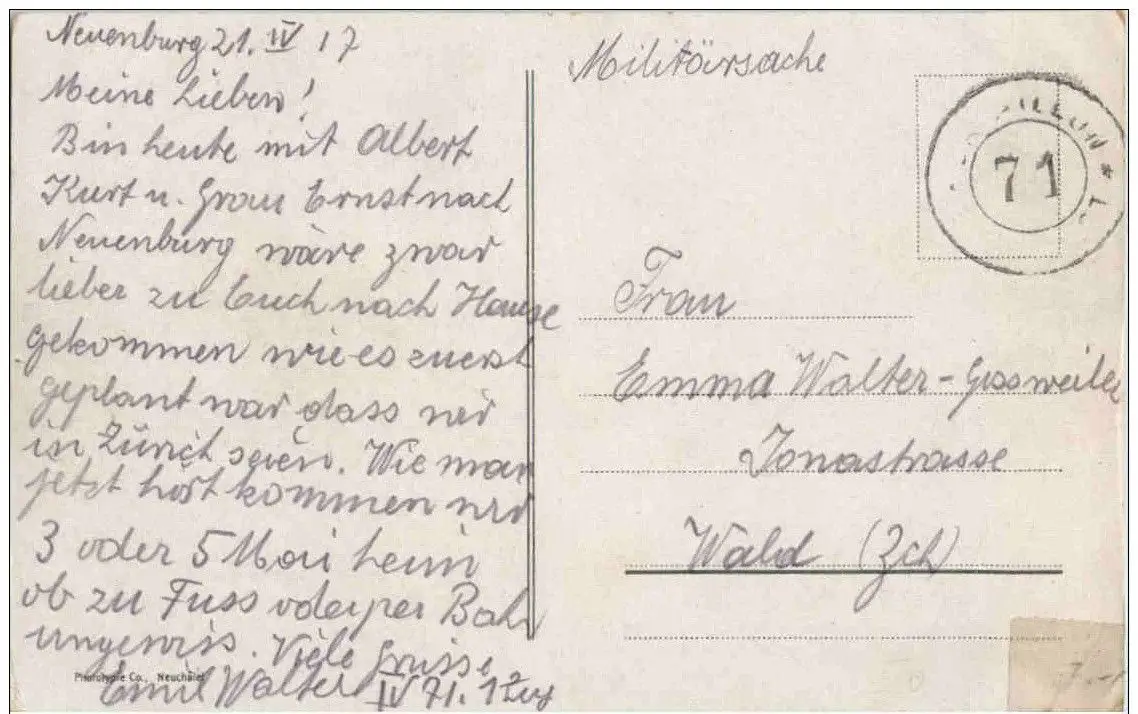 Neuenburg 21. IV 17
Meine Lieben!
Bin heute mit Albert
Kurt u. Frau Ernst nach
Neuenburg wäre zwar
lieber zu Euch nach Hause
gekommen wie es zuerst
geplant war dass wir
in Zürich seien. Wie man
jetzt hört kommen wir
3 oder 5 Mai heim
ob zu Fuss oder per Bahn
ungewiss. Viele Grüsse
Emil Walter IV 71. 1 Zug
Phototypie Co., Neuchâtel
Militärsache
71
Frau
Emma Walter-Gossweiler
Jonastrasse
Wald (Zch)